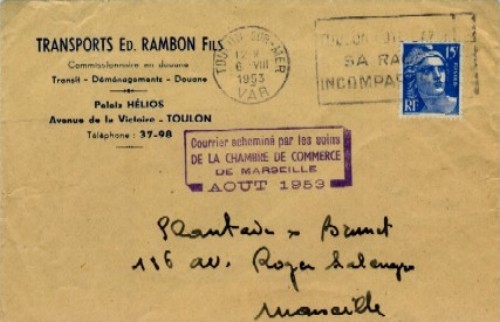 TRANSPORTS ED. RAMBON FILS
Commissionnaire en douane
Transit - Déménagements - Douane
Palais HÉLIOS
Avenue de la Victoire - TOULON
Téléphone : 37-98
TOULON-SUR-MER
6 VIII
1953
VAR
SA RA
INCOMPA
15F
RF
Courrier acheminé par les soins
DE LA CHAMBRE DE COMMERCE
DE MARSEILLE
AOUT 1953
Brunet
116 av. Roger Salengro
Marseille